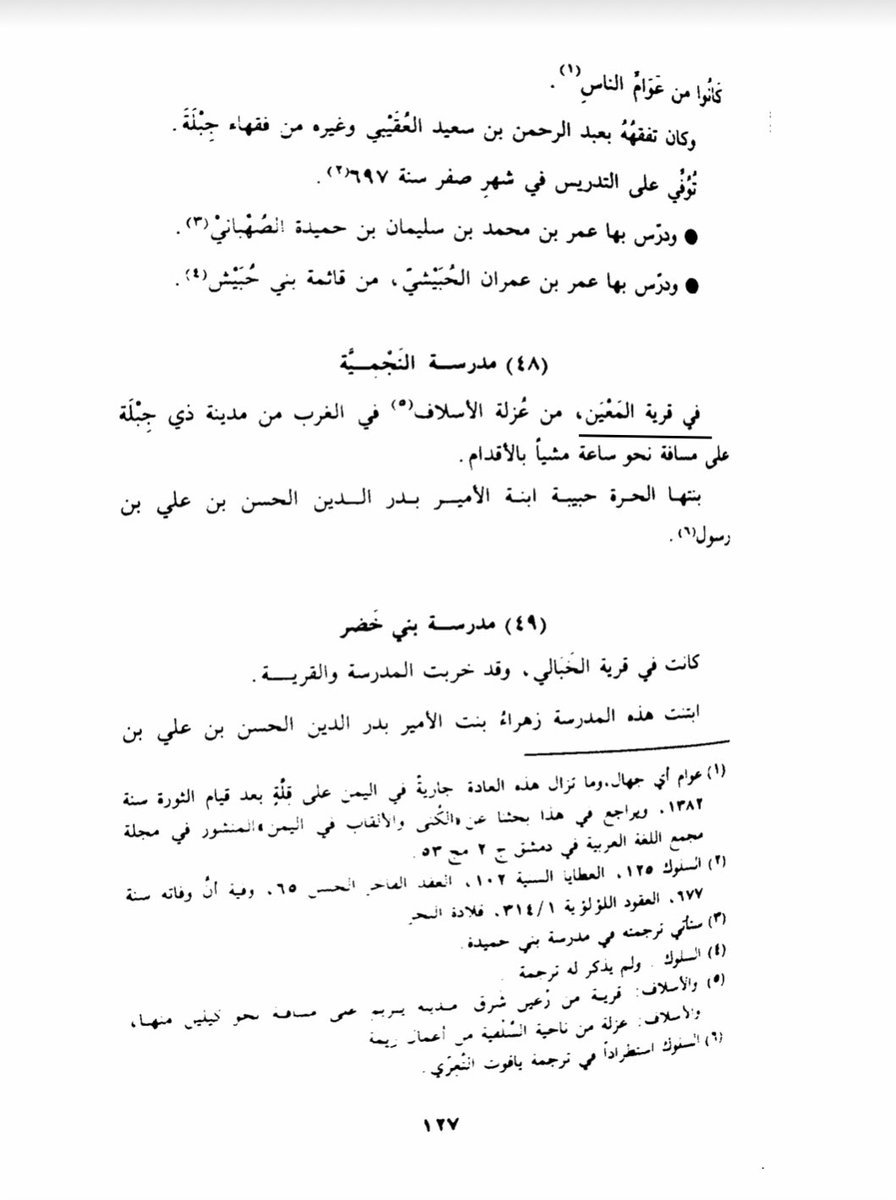 كَانُوا من عَوَامِّ الناسِ(١) .
وكان تفقهُهُ بعبد الرحمن بن سعيد العُقَيْبي وغيره من فقهاء جِبْلَةَ .
تُوُفِّي على التدريس في شهرِ صفر سنة ٦٩٧(٢) .
● ودرّس بها عمر بن محمد بن سليمان بن حميدة الصُهْبانيْ(٣) .
● ودرّس بها عمر بن عمران الحُبَيْشيّ، من قائمة بني حُبَيْش(٤) .
(٤٨) مدرسة النَجْمِيَّة
في قرية المَعْيَن، من عُزلة الأسلاف(٥) في الغرب من مدينة ذي جِبْلَة
على مسافة نحو ساعة مشياً بالأقدام .
بنتها الحرة حبيبة ابنة الأمير بدر الدين الحسن بن علي بن
رسول(٦) .
(٤٩) مدرسة بني خَضر
كانت في قرية الخَبَالي، وقد خربت المدرسة والقرية .
ابتنت هذه المدرسة زهراءُ بنت الأمير بدر الدين الحسن بن علي بن
(١) عوام أي جهال، وما تزال هذه العادة جاريةً في اليمن على قِلَّةٍ بعد قيام الثورة سنة
١٣٨٢، ويراجع في هذا بحثنا عن «الكُنى والألقاب في اليمن» المنشور في مجلة
مجمع اللغة العربية في دمشق ج ٢ مج ٥٣ .
(٢) السلوك ١٢٥، العطايا السنية ١٠٢، العقد الفاخر الحسن ٦٥، وفيه أنَّ وفاته سنة
٦٧٧، العقود اللؤلؤية ٣١٤/١، قلادة النحر
(٣) ستأتي ترجمته في مدرسة بني حميدة .
(٤) السلوك . ولم يذكر له ترجمة .
(٥) والأسلاف: قرية من رُعين شرق مدينة يريم على مسافة نحو كيلين منها،
والأسلاف: عزلة من ناحية السَّلْفية من أعمال ريمة
(٦) السلوك استطراداً في ترجمة ياقوت التَّعِزّي .
١٢٧